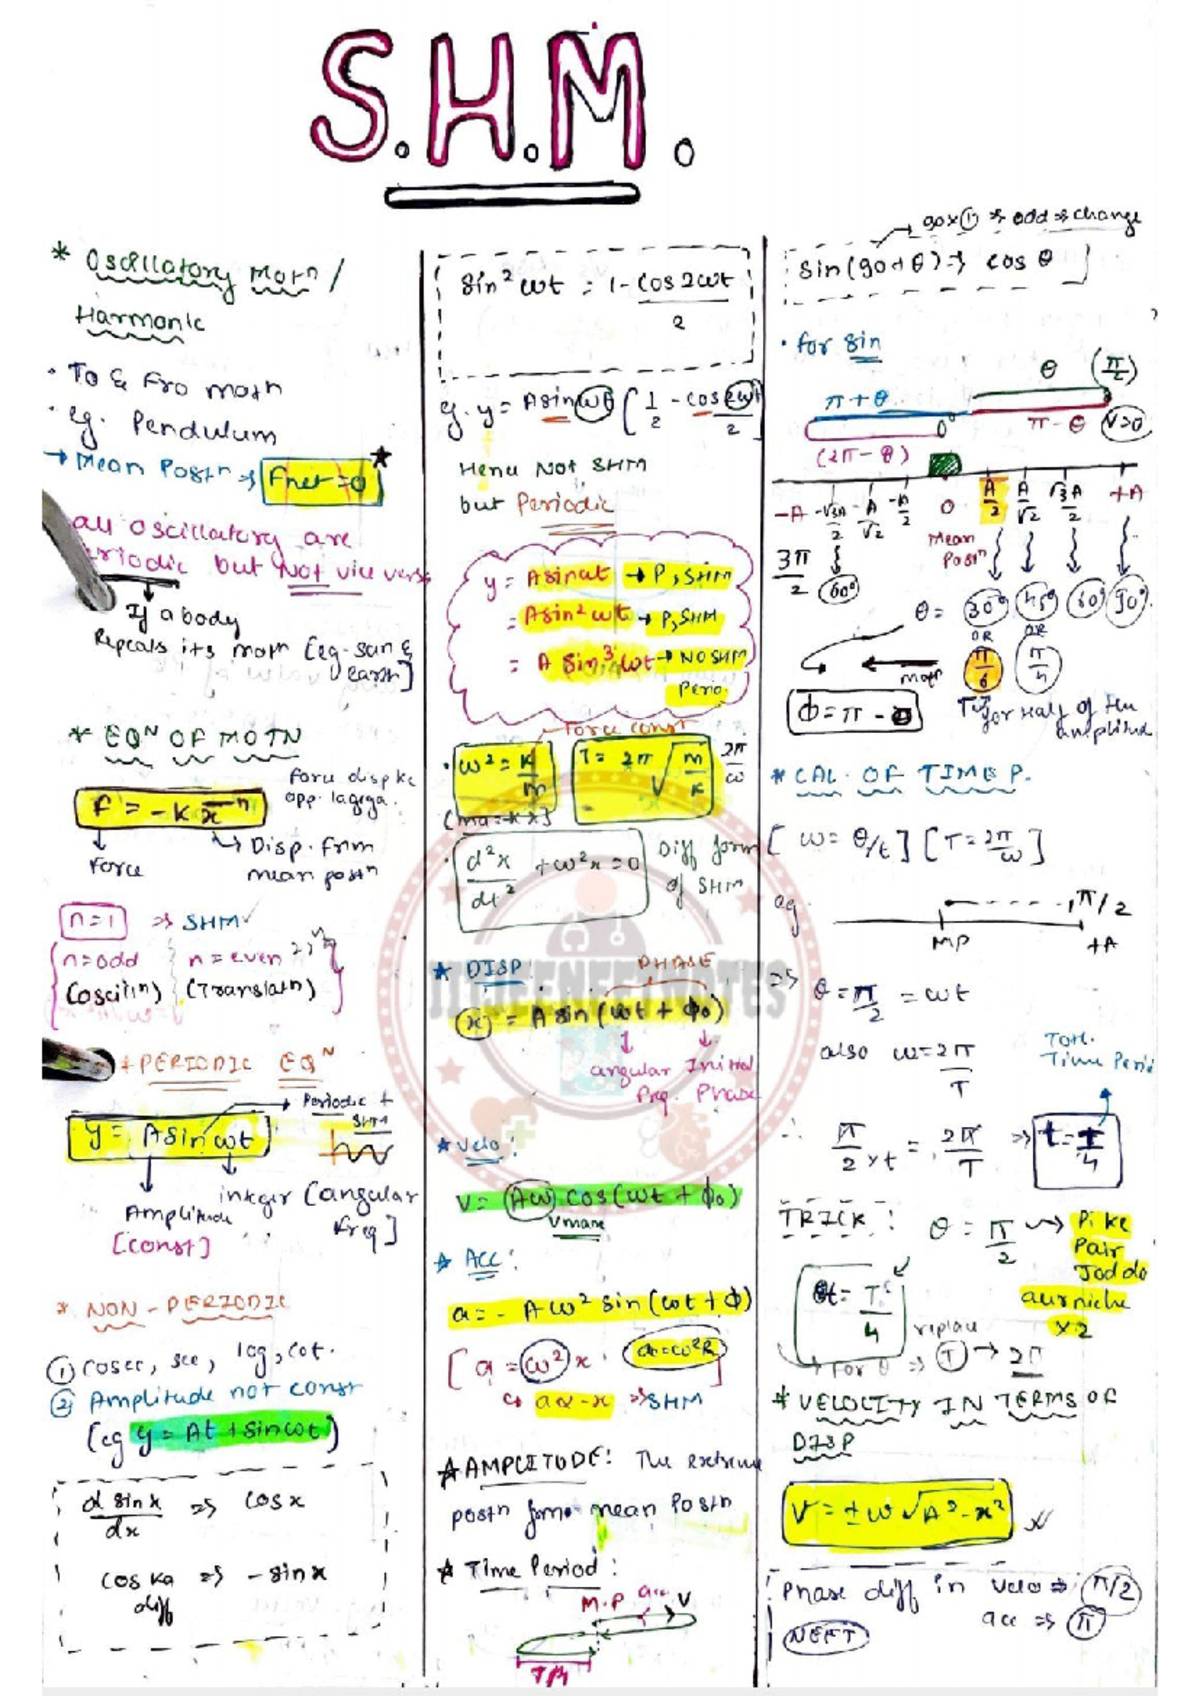 S.H.M.
* Oscillatory Motⁿ /
Harmonic
• To & Fro motn
• eg. Pendulum
→ Mean Postⁿ ⇒ Fnet = 0
all oscillatory are
periodic but Not vice versa
If a body
Repeats its motn [eg- sun &
earth]
* EQᴺ OF MOTN
F = -k xⁿ
force disp ke
opp. lagega.
Force
Disp. from
mean postⁿ
n=1 ⇒ SHM
n=odd
(oscilⁿ)
n = even
(Translatn)
* PERIODIC EQᴺ
Periodic +
SHM
y = A sin ωt
Amplitude
[const]
integer [angular
freq]
* NON - PERIODIC
① cosec, sec, log, cot.
② Amplitude not const
(eg y = At + sin ωt)
d sin x / dx ⇒ cos x
cos ka ⇒ - sin x
diff
sin² ωt = 1 - cos 2ωt / 2
y = A sin ωt [1/2 - cos 2ωt / 2]
Hence Not SHM
but Periodic
y = A sin ωt → P, SHM
= A sin² ωt → P, SHM
= A sin³ ωt → NO SHM
Perio.
Force const
• ω² = k/m
T = 2π √m/k
2π/ω
[ma = -kx]
• d²x/dt² + ω²x = 0
Diff form
of SHM
* DISP:
PHASE
x = A sin (ωt + ϕ₀)
angular
frq.
Initial
Phase
* Velo:
V = (Aω) cos (ωt + ϕ₀)
Vmax
* ACC:
a = - Aω² sin (ωt + ϕ)
[a = ω² x
a = ω²R ]
a ∝ -x ⇒ SHM
* AMPLITUDE: The extreme
postn from mean Postn
* Time Period:
M.P acc V
T/4
90×① ⇒ odd ⇒ change
sin (90+θ) ⇒ cos θ
• for sin
θ (π/2)
π + θ
π - θ V=0
(2π - θ) 0°
-A -√3A/2 -A/√2 -A/2 0 A/2 A/√2 √3A/2 +A
Mean
Postⁿ
3π/2
60°
θ = 30° 45° 60° 90°
OR OR
π/6 π/4
motn
ϕ = π - θ
for half of the
amplitude
* CAL. OF TIME P.
[ω = θ/t] [T = 2π/ω]
eg
MP +A π/2
⇒ θ = π/2 = ωt
also ω = 2π/T
Tot.
Time Peri
∴ π/2 × t = 2π/T ⇒ t = T/4
TRICK: θ = π/2
Pi ke
Pair
Tod do
aur niche
×2
t = T/4
replace
For θ ⇒ T → 2π
* VELOCITY IN TERMS OF
DISP
V = ±ω √A² - x²
Phase diff in velo ⇒ π/2
acc ⇒ π
NEET